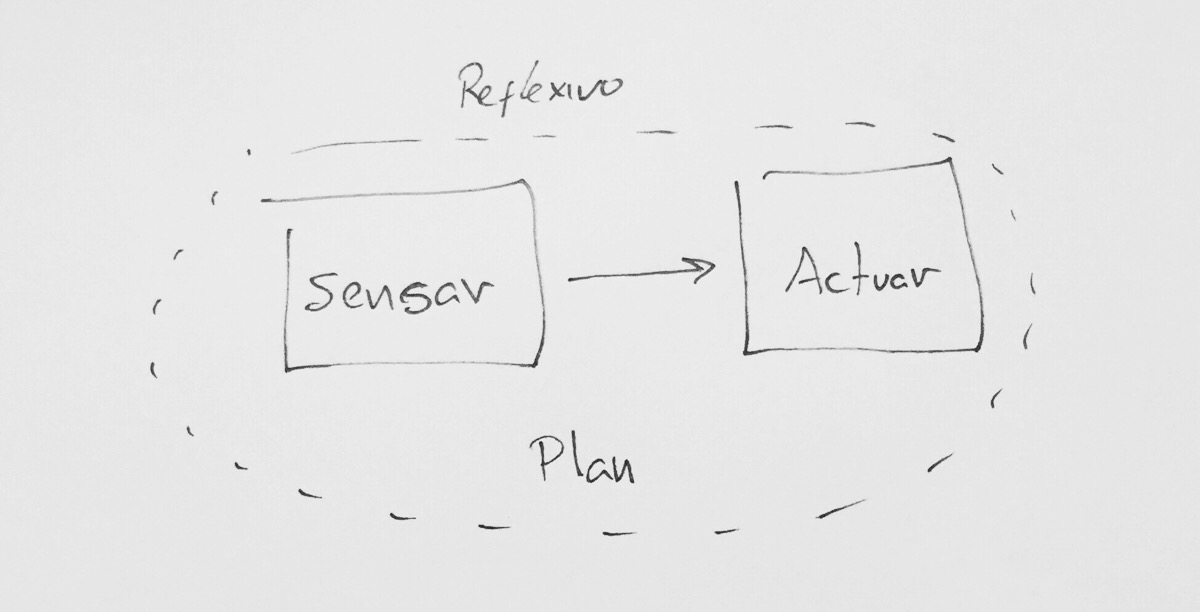 Reflexivo
Sensar
Actuar
Plan